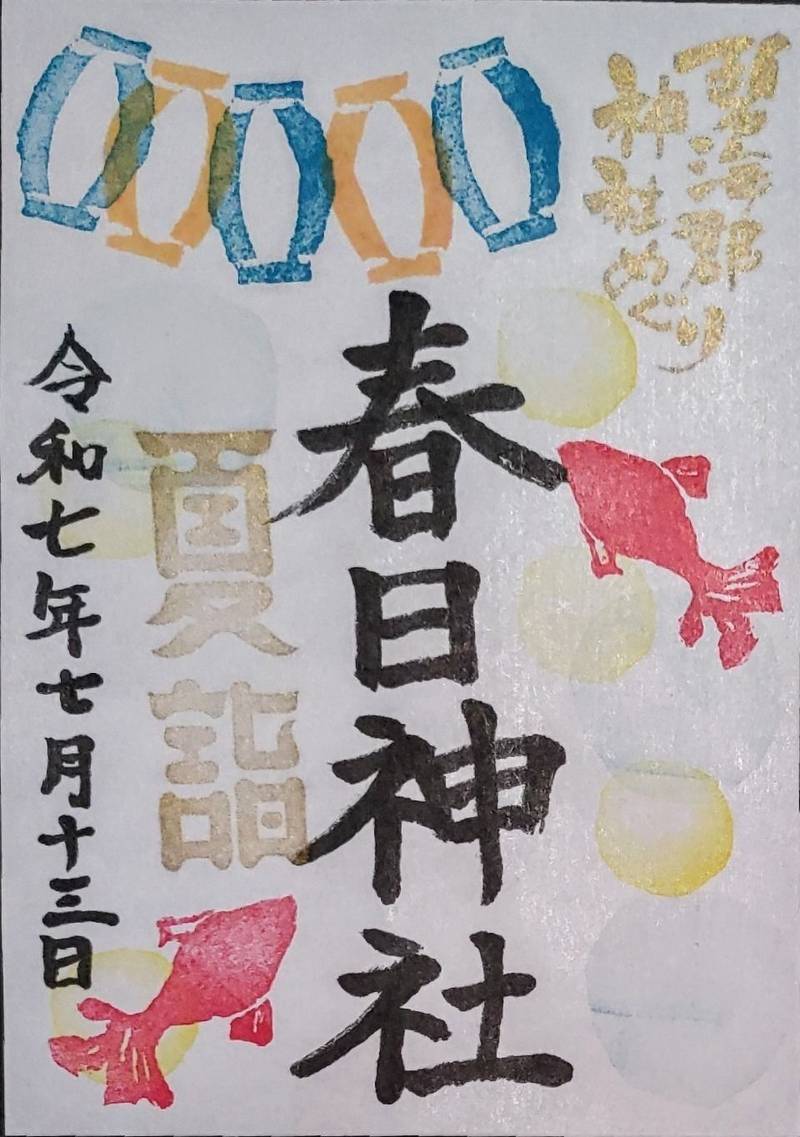 神社めぐり
春日神社
夏詣
令和七年七月十三日